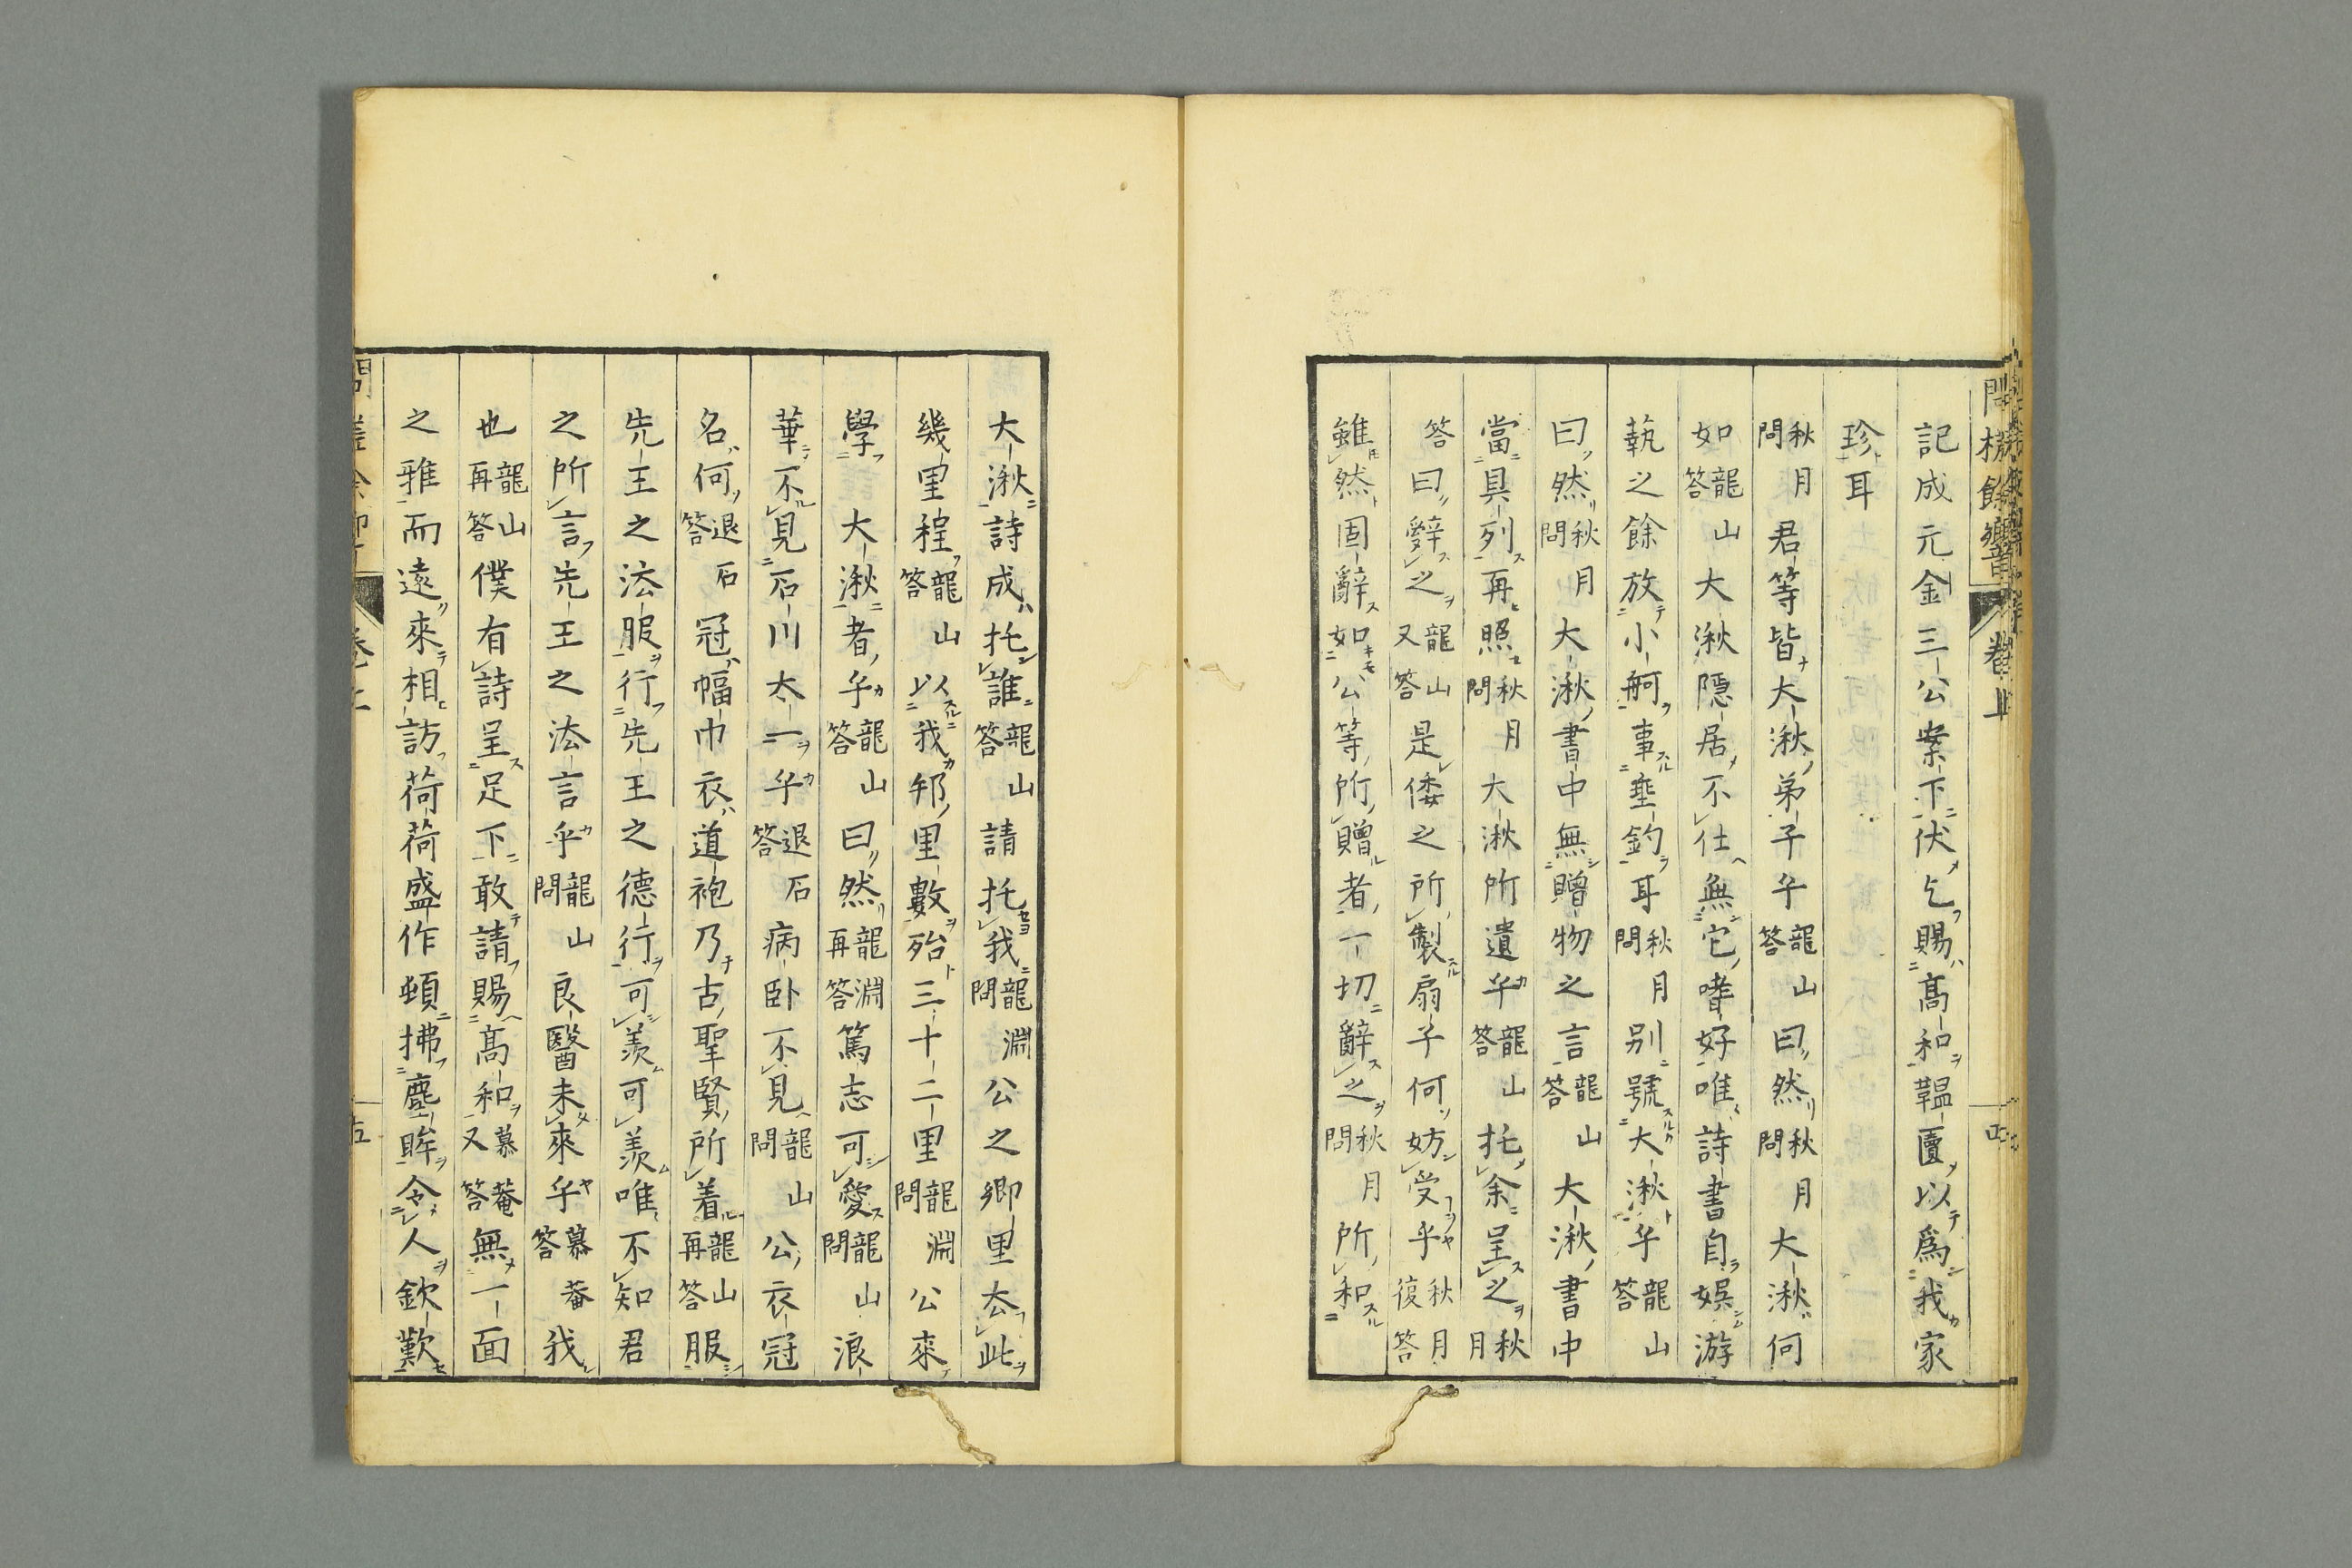 問槎餘響 卷上
記成元金三公案下伏乞賜高和韞匵以爲我家
珍耳
秋月問君等皆大湫弟子乎龍山答曰然秋月問大湫何
如龍山答大湫隱居不仕無它嗜好唯詩書自娛游
執之餘放小舸事垂釣耳秋月問別號大湫乎龍山答
曰然秋月問大湫書中無贈物之言龍山答大湫書中
當具列再照秋月問大湫所遺乎龍山答托余呈之秋月
答曰辭之龍山又答是倭之所製扇子何妨受乎秋月復答
雖然固辭如公等所贈者一切辭之秋月問所和
大湫詩成托誰龍山答請托我龍淵問公之鄉里去此
幾里程龍山答以我邦里數殆三十二里龍淵問公來
學大湫者乎龍山答曰然龍淵再答篤志可愛龍山問浪
華不見石川太一乎退石答病臥不見龍山問公衣冠
名何退石答冠幅巾衣道袍乃古聖賢所着龍山再答服
先王之法服行先王之德行可羨可羨唯不知君
之所言先王之法言乎龍山問良醫未來乎慕菴答我
也龍山再答僕有詩呈足下敢請賜高和慕菴又答無一面
之雅而遠來相訪荷荷盛作頓拂塵眸令人欽歎